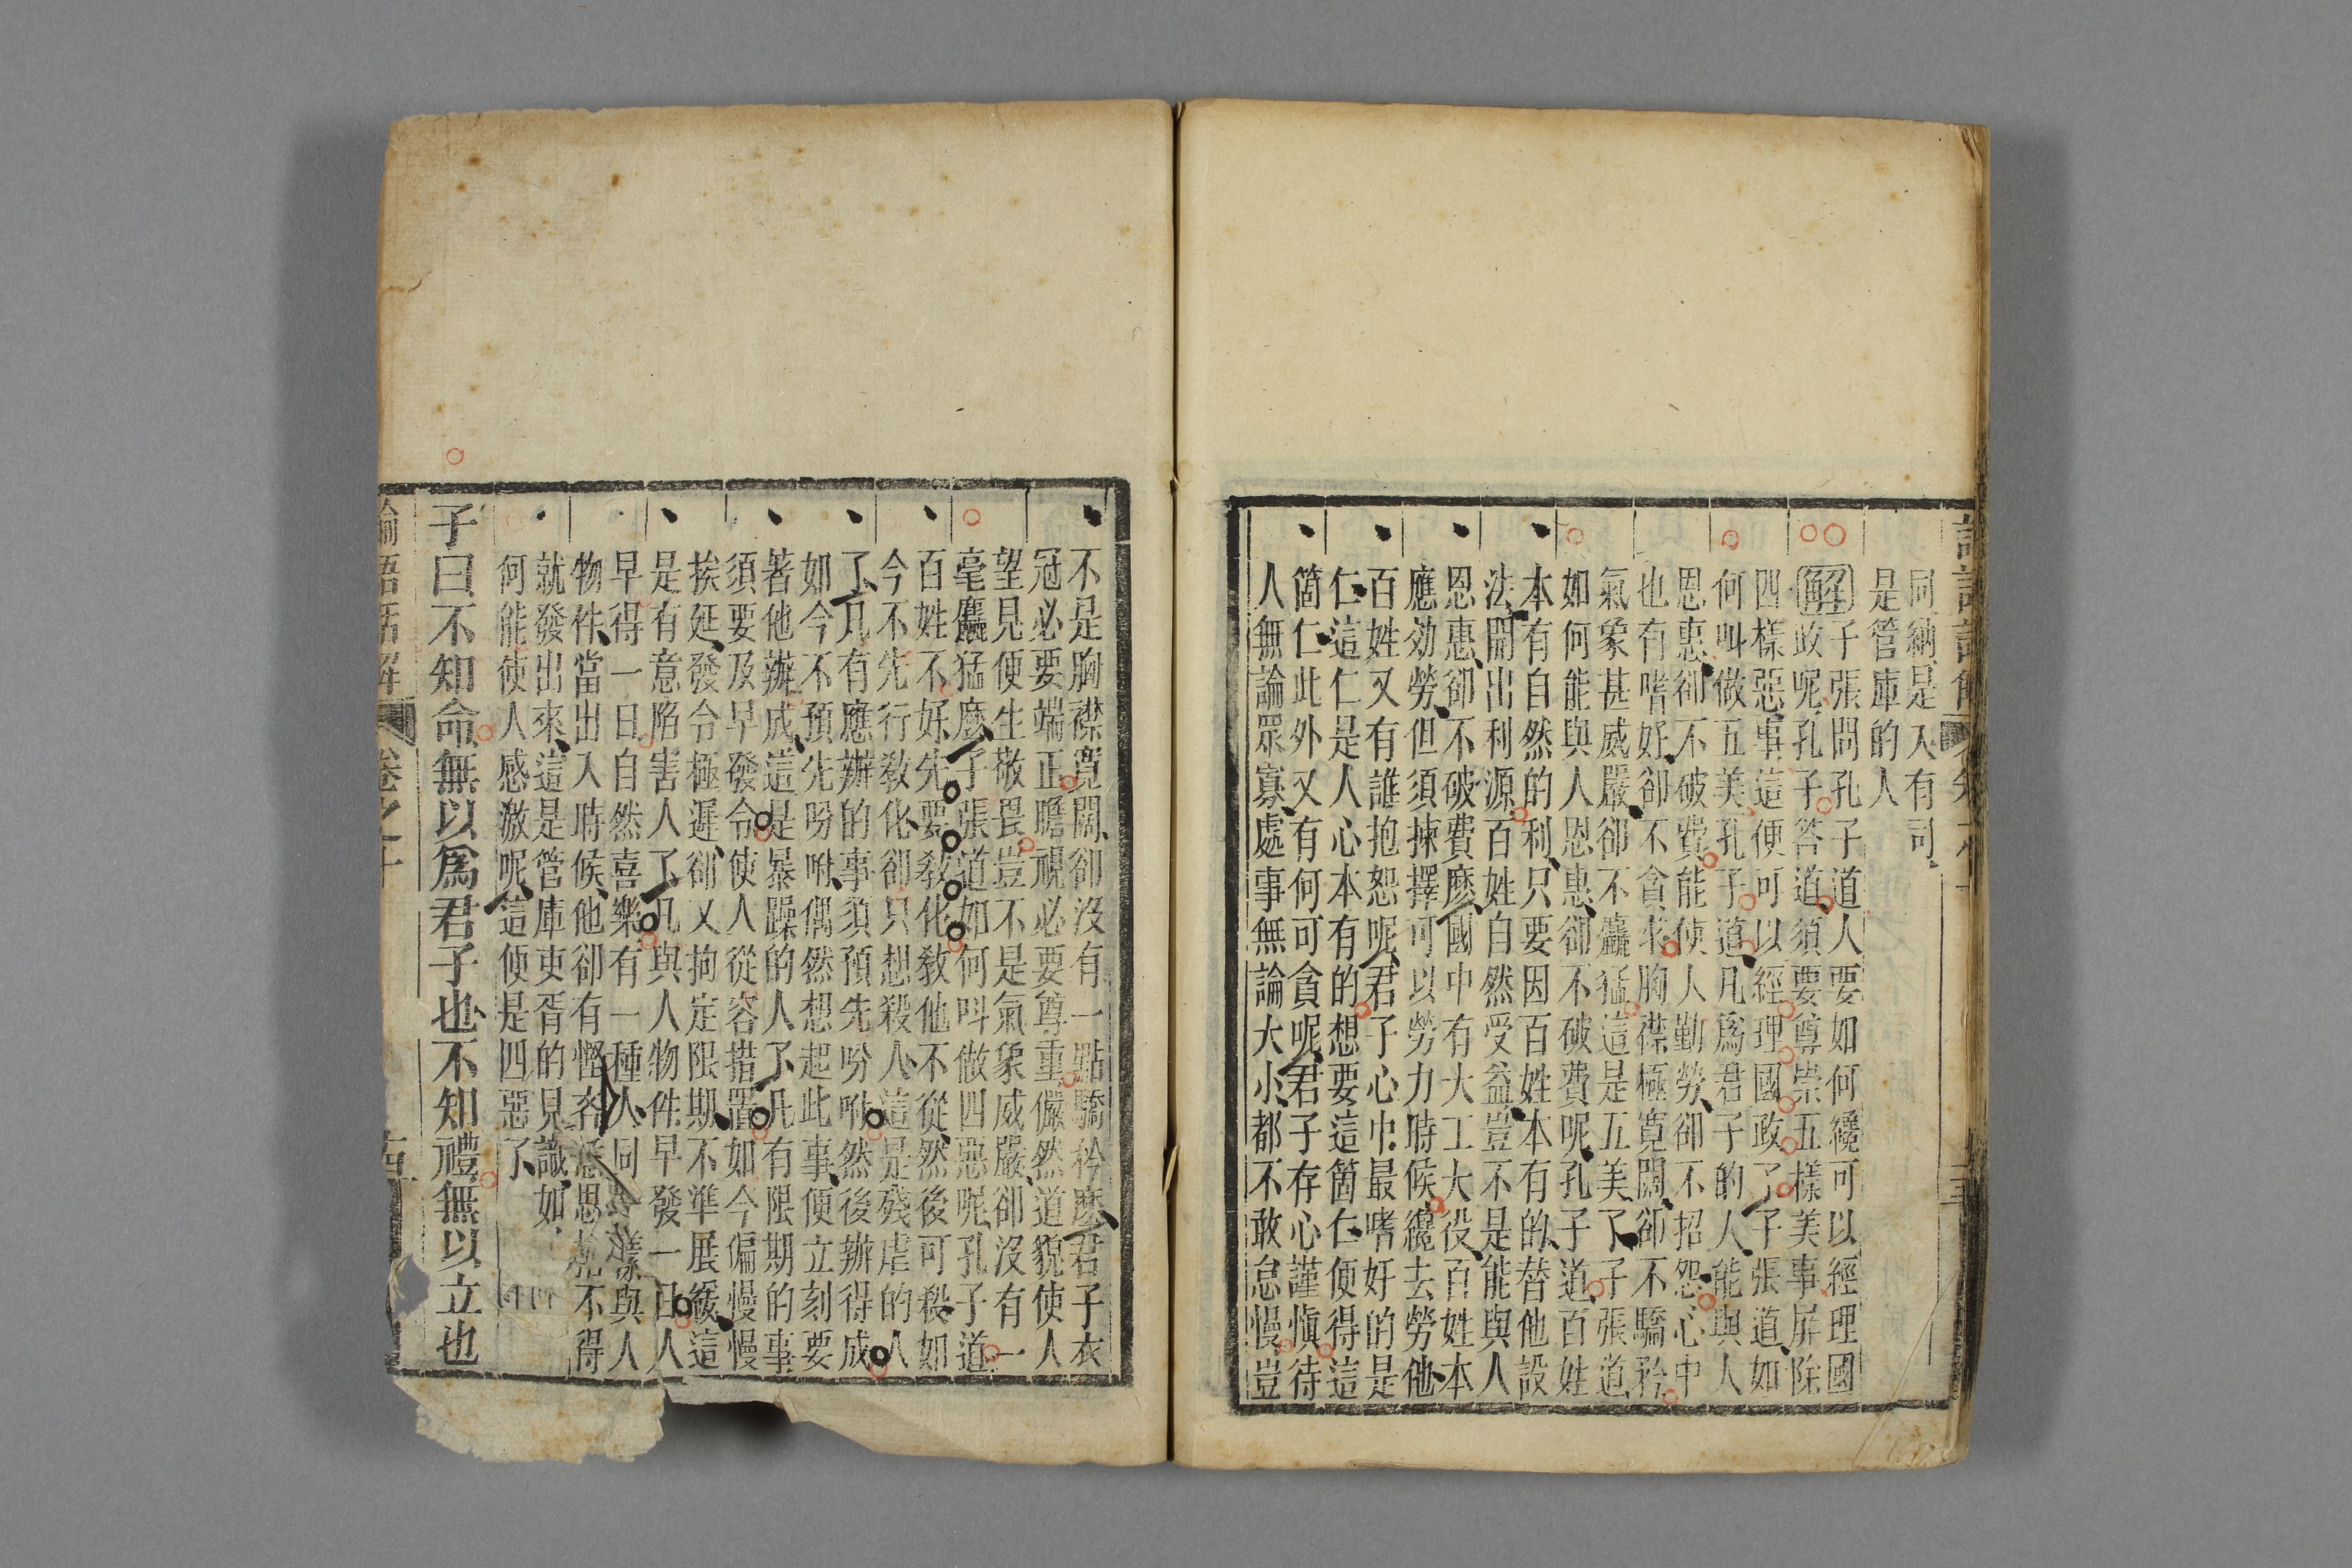 同納是入有司
是管庫的人
解子張問孔子道人要如何纔可以經理國
政呢孔子答道須要尊崇五樣美事屏除
四樣惡事這便可以經理國政了子張道如
何叫做五美孔子道凡爲君子的人能與人
恩惠卻不破費能使人勤勞卻不招怨心中
也有嗜好卻不貪求胸襟極寬闊卻不驕矜
氣象甚威嚴卻不麤猛這是五美了子張道
如何能與人恩惠卻不破費呢孔子道百姓
本有自然的利只要因百姓本有的替他設
法開出利源百姓自然受益豈不是能與人
恩惠卻不破費麽國中有大工大役百姓本
應効勞但須揀擇可以勞力時候纔去勞他
百姓又有誰抱怨呢君子心中最嗜好的是
仁這仁是人心本有的想要這箇仁便得這
箇仁此外又有何可貪呢君子存心謹愼待
人無論眾寡處事無論大小都不敢怠慢豈
不是胸襟寬闊卻沒有一點驕矜麽君子衣
冠必要端正瞻視必要尊重儼然道貌使人
望見便生敬畏豈不是氣象威嚴卻沒有一
毫麤猛麽子張道如何叫做四惡呢孔子道
百姓不好先要敎化敎他不從然後可殺如
今不先行敎化卻只想殺人這是殘虐的人
了凡有應辦的事須預先吩咐然後辦得成
如今不預先吩咐偶然想起此事便立刻要
著他辦成這是暴躁的人了凡有限期的事
須要及早發令使人從容措置如今偏慢慢
挨延發令極遲卻又拘定限期不準展緩這
是有意陷害人了凡與人物件早發一日人
早得一日自然喜樂有一種人同是樣與人
物件當出入時候他卻有慳吝思不得
就發出來這是管庫吏胥的見識如
何能使人感激呢這便是四惡了
子曰不知命無以爲君子也不知禮無以立也
論語話解 卷之十